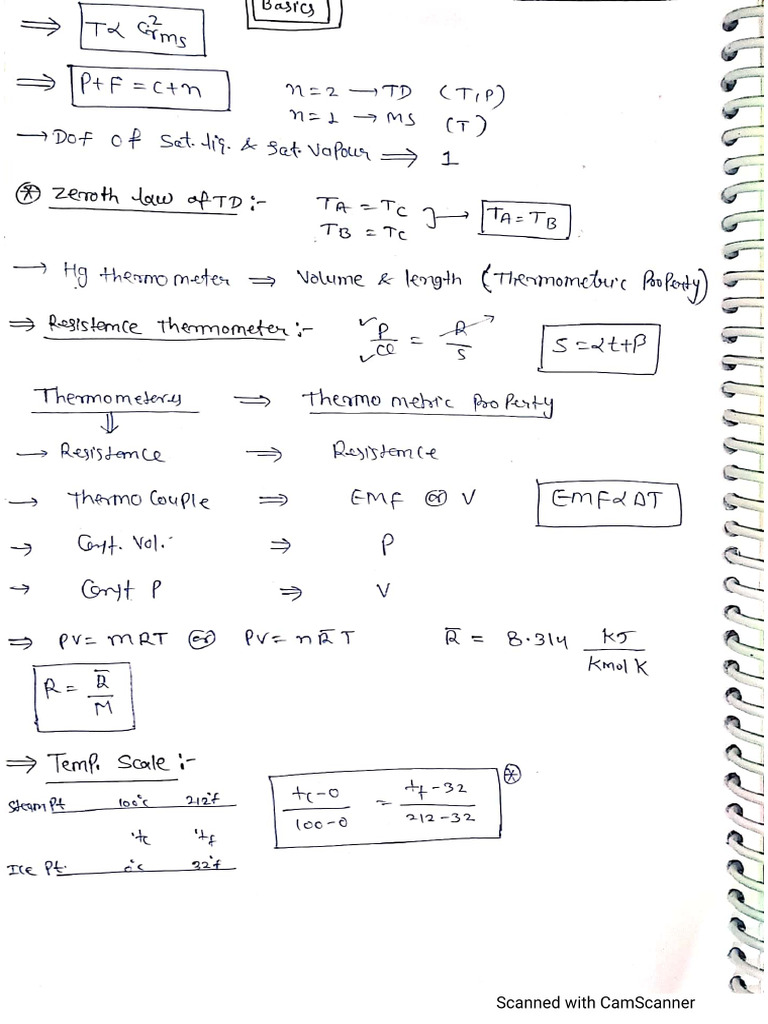 Basics
⇒ T∝ C²rms
⇒ P+F = C+n
n=2 → TD (T,P)
n=1 → MS (T)
→ Dof of Sat. liq. & Sat. Vapour ⇒ 1
⊛ Zeroth law of TD :-
TA = TC
TB = TC
} → TA = TB
→ Hg thermometer ⇒ Volume & length (Thermometric Property)
⇒ Resistance thermometer :-
P/Q = R/S
S = αt+β
Thermometers ⇒ Thermometric Property
⇓
→ Resistance ⇒ Resistance
→ Thermocouple ⇒ EMF or V
EMF ∝ ΔT
→ Const. Vol. ⇒ P
→ Const P ⇒ V
⇒ PV = mRT or PV = nR̄T
R̄ = 8.314 kJ/Kmol K
R = R̄/M
⇒ Temp. Scale :-
Steam Pt 100°C 212°f
tc tf
Ice Pt. 0°C 32°f
tc-0/100-0 = tf-32/212-32 ⊛
Scanned with CamScanner